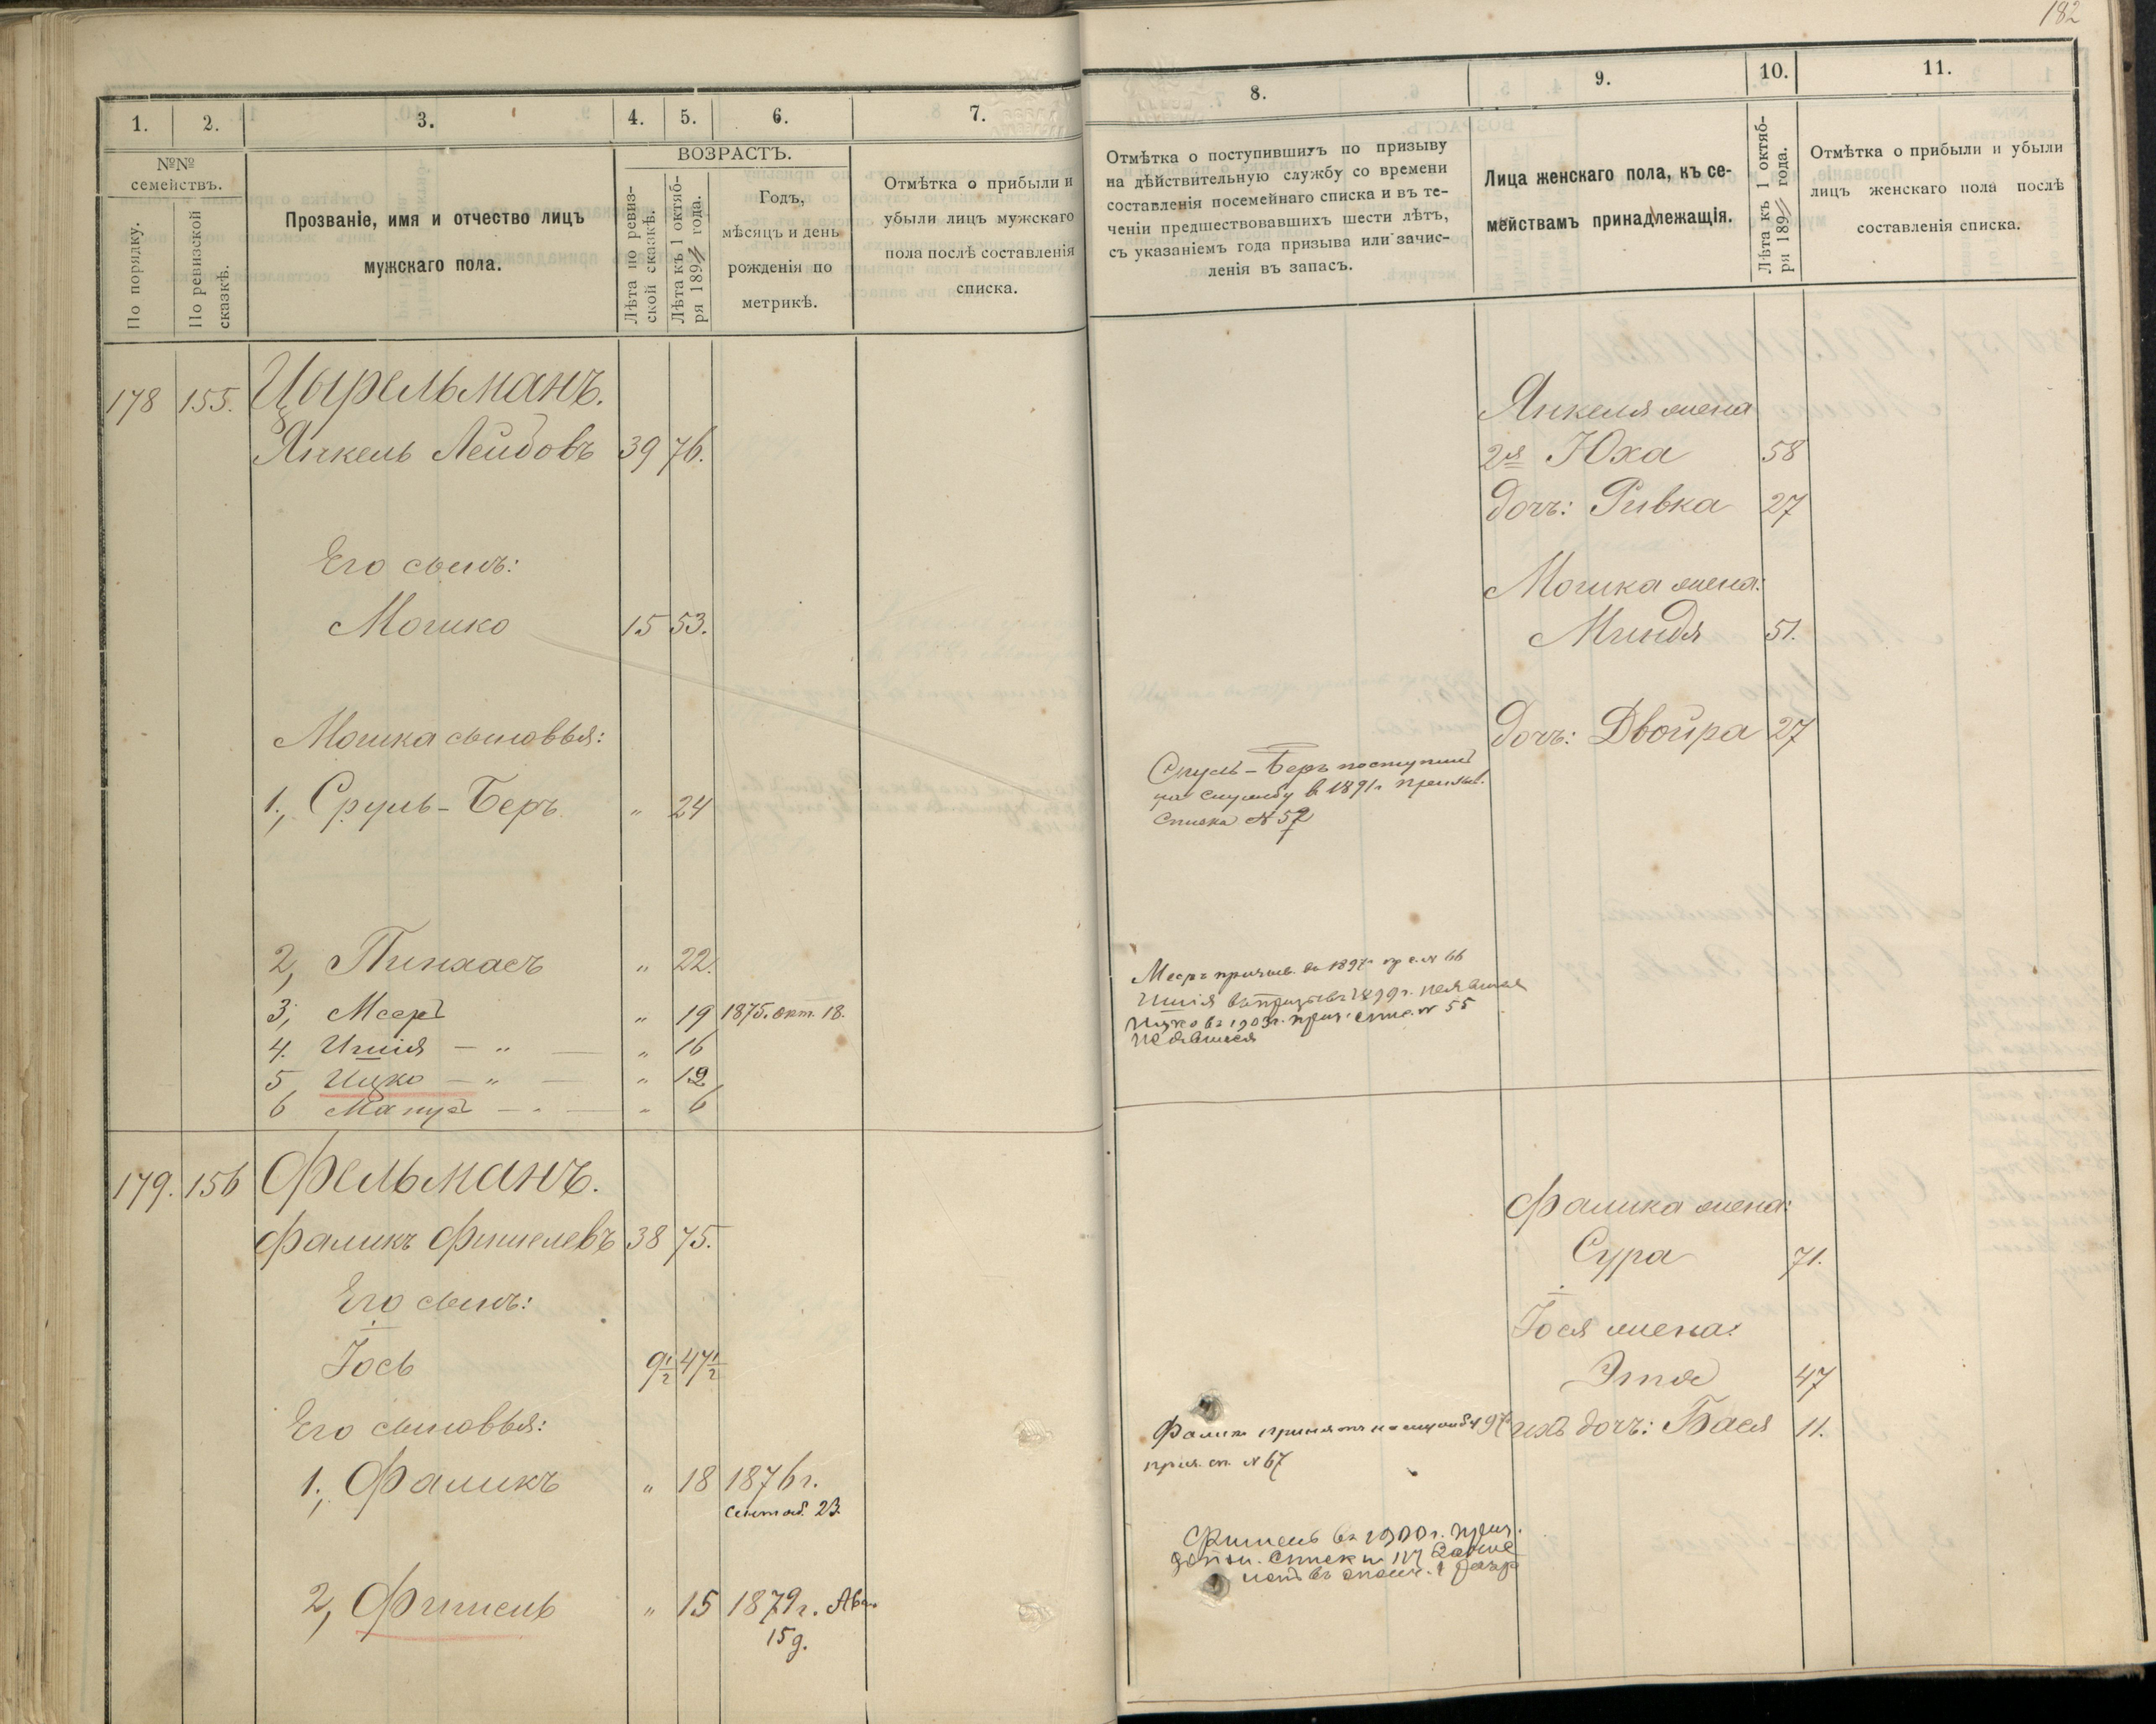 182
1.
2.
3.
4.
5.
6.
7.
№№
семействъ.
По порядку.
По ревизской
сказкѣ.
Прозваніе, имя и отчество лицъ
мужскаго пола.
ВОЗРАСТЪ.
Лѣта по ревиз-
ской сказкѣ.
Лѣта къ 1 октяб-
ря 189 года.
Годъ,
мѣсяцъ и день
рожденія по
метрикѣ.
Отмѣтка о прибыли и
убыли лицъ мужскаго
пола послѣ составленія
списка.
178 155. Цырельманъ.
Янкель Лейбовъ 39 76.
Его сынъ:
Мошко 15 53.
Мошка сыновья:
1., Сруль-Беръ " 24
2, Пинхасъ " 22.
3, Меер " 19 1875. окт. 18.
4. Ишія — " — " 16
5, Ицко — " — " 12
6 " 6
179. 156 Фельманъ.
Фаликъ Фишелевъ 38 75.
Его сынъ:
Іось 9½ 47½
Его сыновья:
1., Фаликъ " 18 1876 г.
Сентяб. 23.
2, Фишель " 15 1879 г. Авг.
15 д.
8.
9.
10.
11.
Отмѣтка о поступившихъ по призыву
на дѣйствительную службу со времени
составленія посемейнаго списка и въ те-
ченіи предшествовавшихъ шести лѣтъ,
съ указаніемъ года призыва или зачис-
ленія въ запасъ.
Лица женскаго пола, къ се-
мействамъ принадлежащія.
Лѣта къ 1 октяб-
ря 189 года.
Отмѣтка о прибыли и убыли
лицъ женскаго пола послѣ
составленія списка.
Янкеля жена
2я Юха 58
дочь: Ривка 27
Мошка жена:
Миндя 51.
дочь: Двойра 27
Сруль-Беръ поступил
на службу в 1891 г призыв.
Списка № 52
Меер призыв. въ 1897 пр. с. № 66
Ишія въ призывъ 1899 г. неявился
Ицко въ 1903 г. приз. спис. № 55
не явился
Фалика жена:
Сура 71.
Іося жена:
Этя 47
ихъ дочь: Бася 11.
Фалик принятъ на службу 97
приз. сп. № 67
Фишель въ 1900 г. приз.
списк № 117
въ ополч. 1 разр